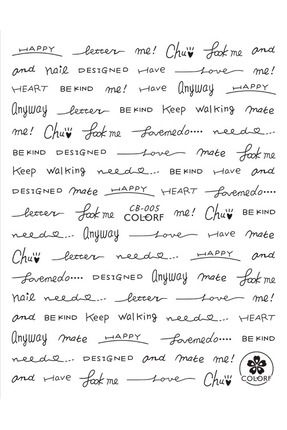 HAPPY letter me! Chu♥ look me and
and nail DESIGNED Have Love me!
HEART BE KIND me! Have Anyway HAPPY
Anyway letter BE KIND Keep walking mate
me! Chu♥ look me lovemedo.... need...
BE KIND DESIGNED Love mate look me
Keep walking need... BE KIND Have and
DESIGNED mate HAPPY HEART lovemedo....
letter look me CB-005 COLORF me! Chu♥ BE KIND
need... Anyway Love Have mate
Chu♥ letter need... HAPPY and
lovemedo.... DESIGNED Anyway mate look me
nail need... letter Love me!
and BE KIND Keep walking need... HEART
Anyway mate HAPPY lovemedo.... BE KIND
need... DESIGNED and mate me!
and Have look me Love Chu♥ COLORF